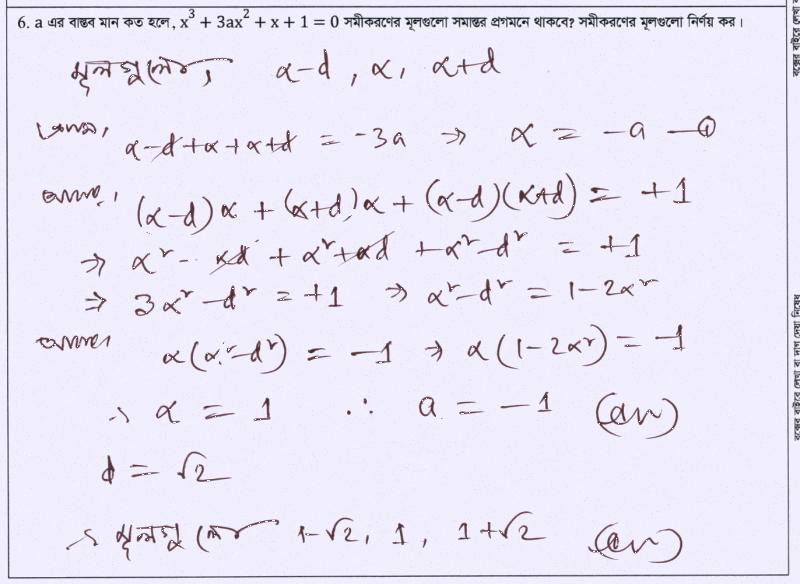 6. a এর বাস্তব মান কত হলে, x³ + 3ax² + x + 1 = 0 সমীকরণের মূলগুলো সমান্তর প্রগমনে থাকবে? সমীকরণের মূলগুলো নির্ণয় কর।
মূলগুলো, α-d, α, α+d
α-d+α+α+d = -3a ⇒ α = -a —①
(α-d)α + (α+d)α + (α-d)(α+d) = +1
⇒ α² - αd + α²+αd + α²-d² = +1
⇒ 3α²-d² = +1 ⇒ α²-d² = 1-2α²
α(α²-d²) = -1 ⇒ α(1-2α²) = -1
⇒ α = 1 ∴ a = -1 (an)
d = √2
⇒ মূলগুলো 1-√2, 1, 1+√2 (an)